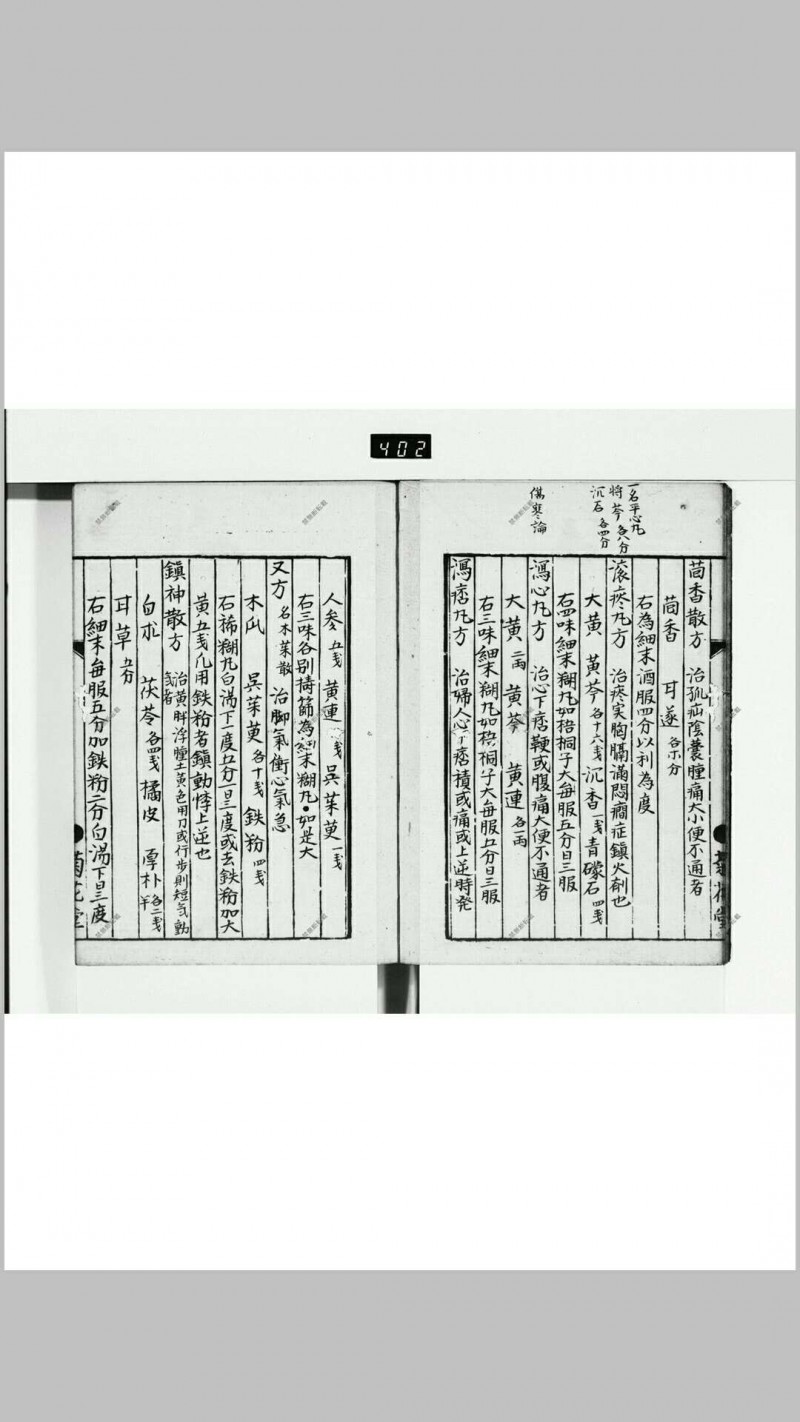 402
一名平心丸
将芩各八分
沉石各四分
傷寒論
茴香散方 治狐疝陰囊腫痛大小便不通者
茴香 耳遂
右為細末酒服四分以利為度
滚痰丸方 治痰実胸膈滿悶癇症鎮火剤也
大黄 黄芩各十六戔 沉香一戔 青礞石四戔
右四味細末糊丸如梧桐子大每服五分日三服
瀉心丸方 治心下痞鞕或腹痛大便不通者
大黄二両 黄芩 黄連各一両
右三味細末糊丸如梧桐子大每服五分日三服
瀉痞丸方 治婦人心下痞積或痛或上逆時発
人参五戔 黄連 戔 呉茱萸一戔
右三味各別擣篩為細末糊丸如是大
又方 名木茱散 治脚氣衝心氣急
木瓜 呉茱萸各十戔 鉄粉四戔
右稀糊丸白湯下一度五分日三度或去鉄粉加大
黄五戔凡用鉄粉者鎮動悸上逆也
鎮神散方 治黄胖浮腫土黄色用力或行步則短氣動
戔者
白朮 茯苓各四戔 橘皮 厚朴各二戔半
耳草五分
右細末每服五分加鉄粉二分白湯下日三度
菊花堂